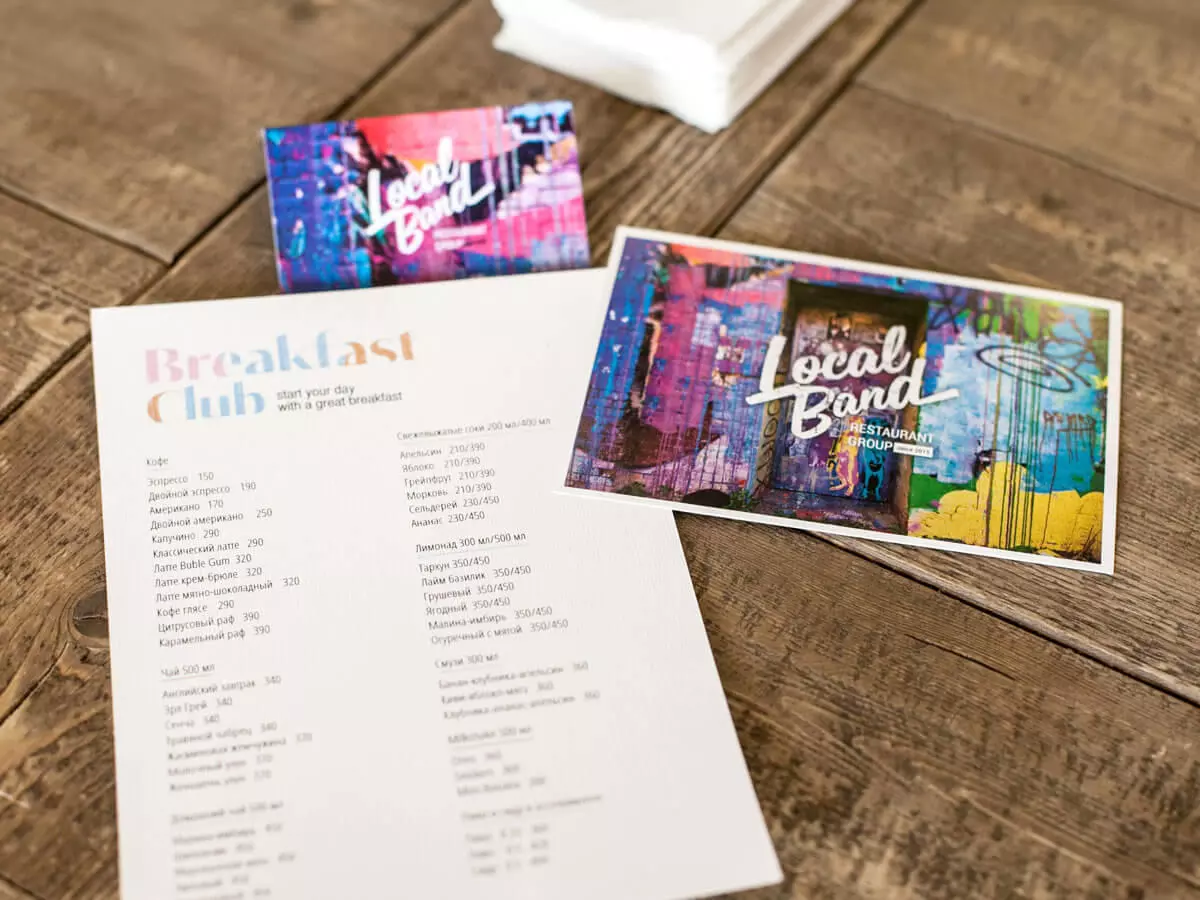 Local
Band
RESTAURANT
GROUP
Local
Band
RESTAURANT
GROUP since 2015
Breakfast
Club
start your day
with a great breakfast
Кофе
Эспрессо 150
Двойной эспрессо 190
Американо 170
Двойной американо 250
Капучино 290
Классический латте 290
Латте Buble Gum 320
Латте крем-брюле 320
Латте мятно-шоколадный 320
Кофе глясе 290
Цитрусовый раф 390
Карамельный раф 390
Чай 500 мл
Английский завтрак 340
Эрл Грей 340
Сенча 340
Травяной чабрец 340
Жасминовая жемчужина 370
Молочный улун 370
Женьшень улун 370
Домашний чай 500 мл
Малина-имбирь 450
Свежевыжатые соки 200 мл/400 мл
Апельсин 210/390
Яблоко 210/390
Грейпфрут 210/390
Морковь 210/390
Сельдерей 230/450
Ананас 230/450
Лимонад 300 мл/500 мл
Тархун 350/450
Лайм базилик 350/450
Грушевый 350/450
Ягодный 350/450
Малина-имбирь 350/450
Огуречный с мятой 350/450
Смузи 300 мл
Банан-клубника-апельсин 360
Киви-яблоко-мята 360
Клубника-ананас-апельсин 360
Milkshake 300 мл